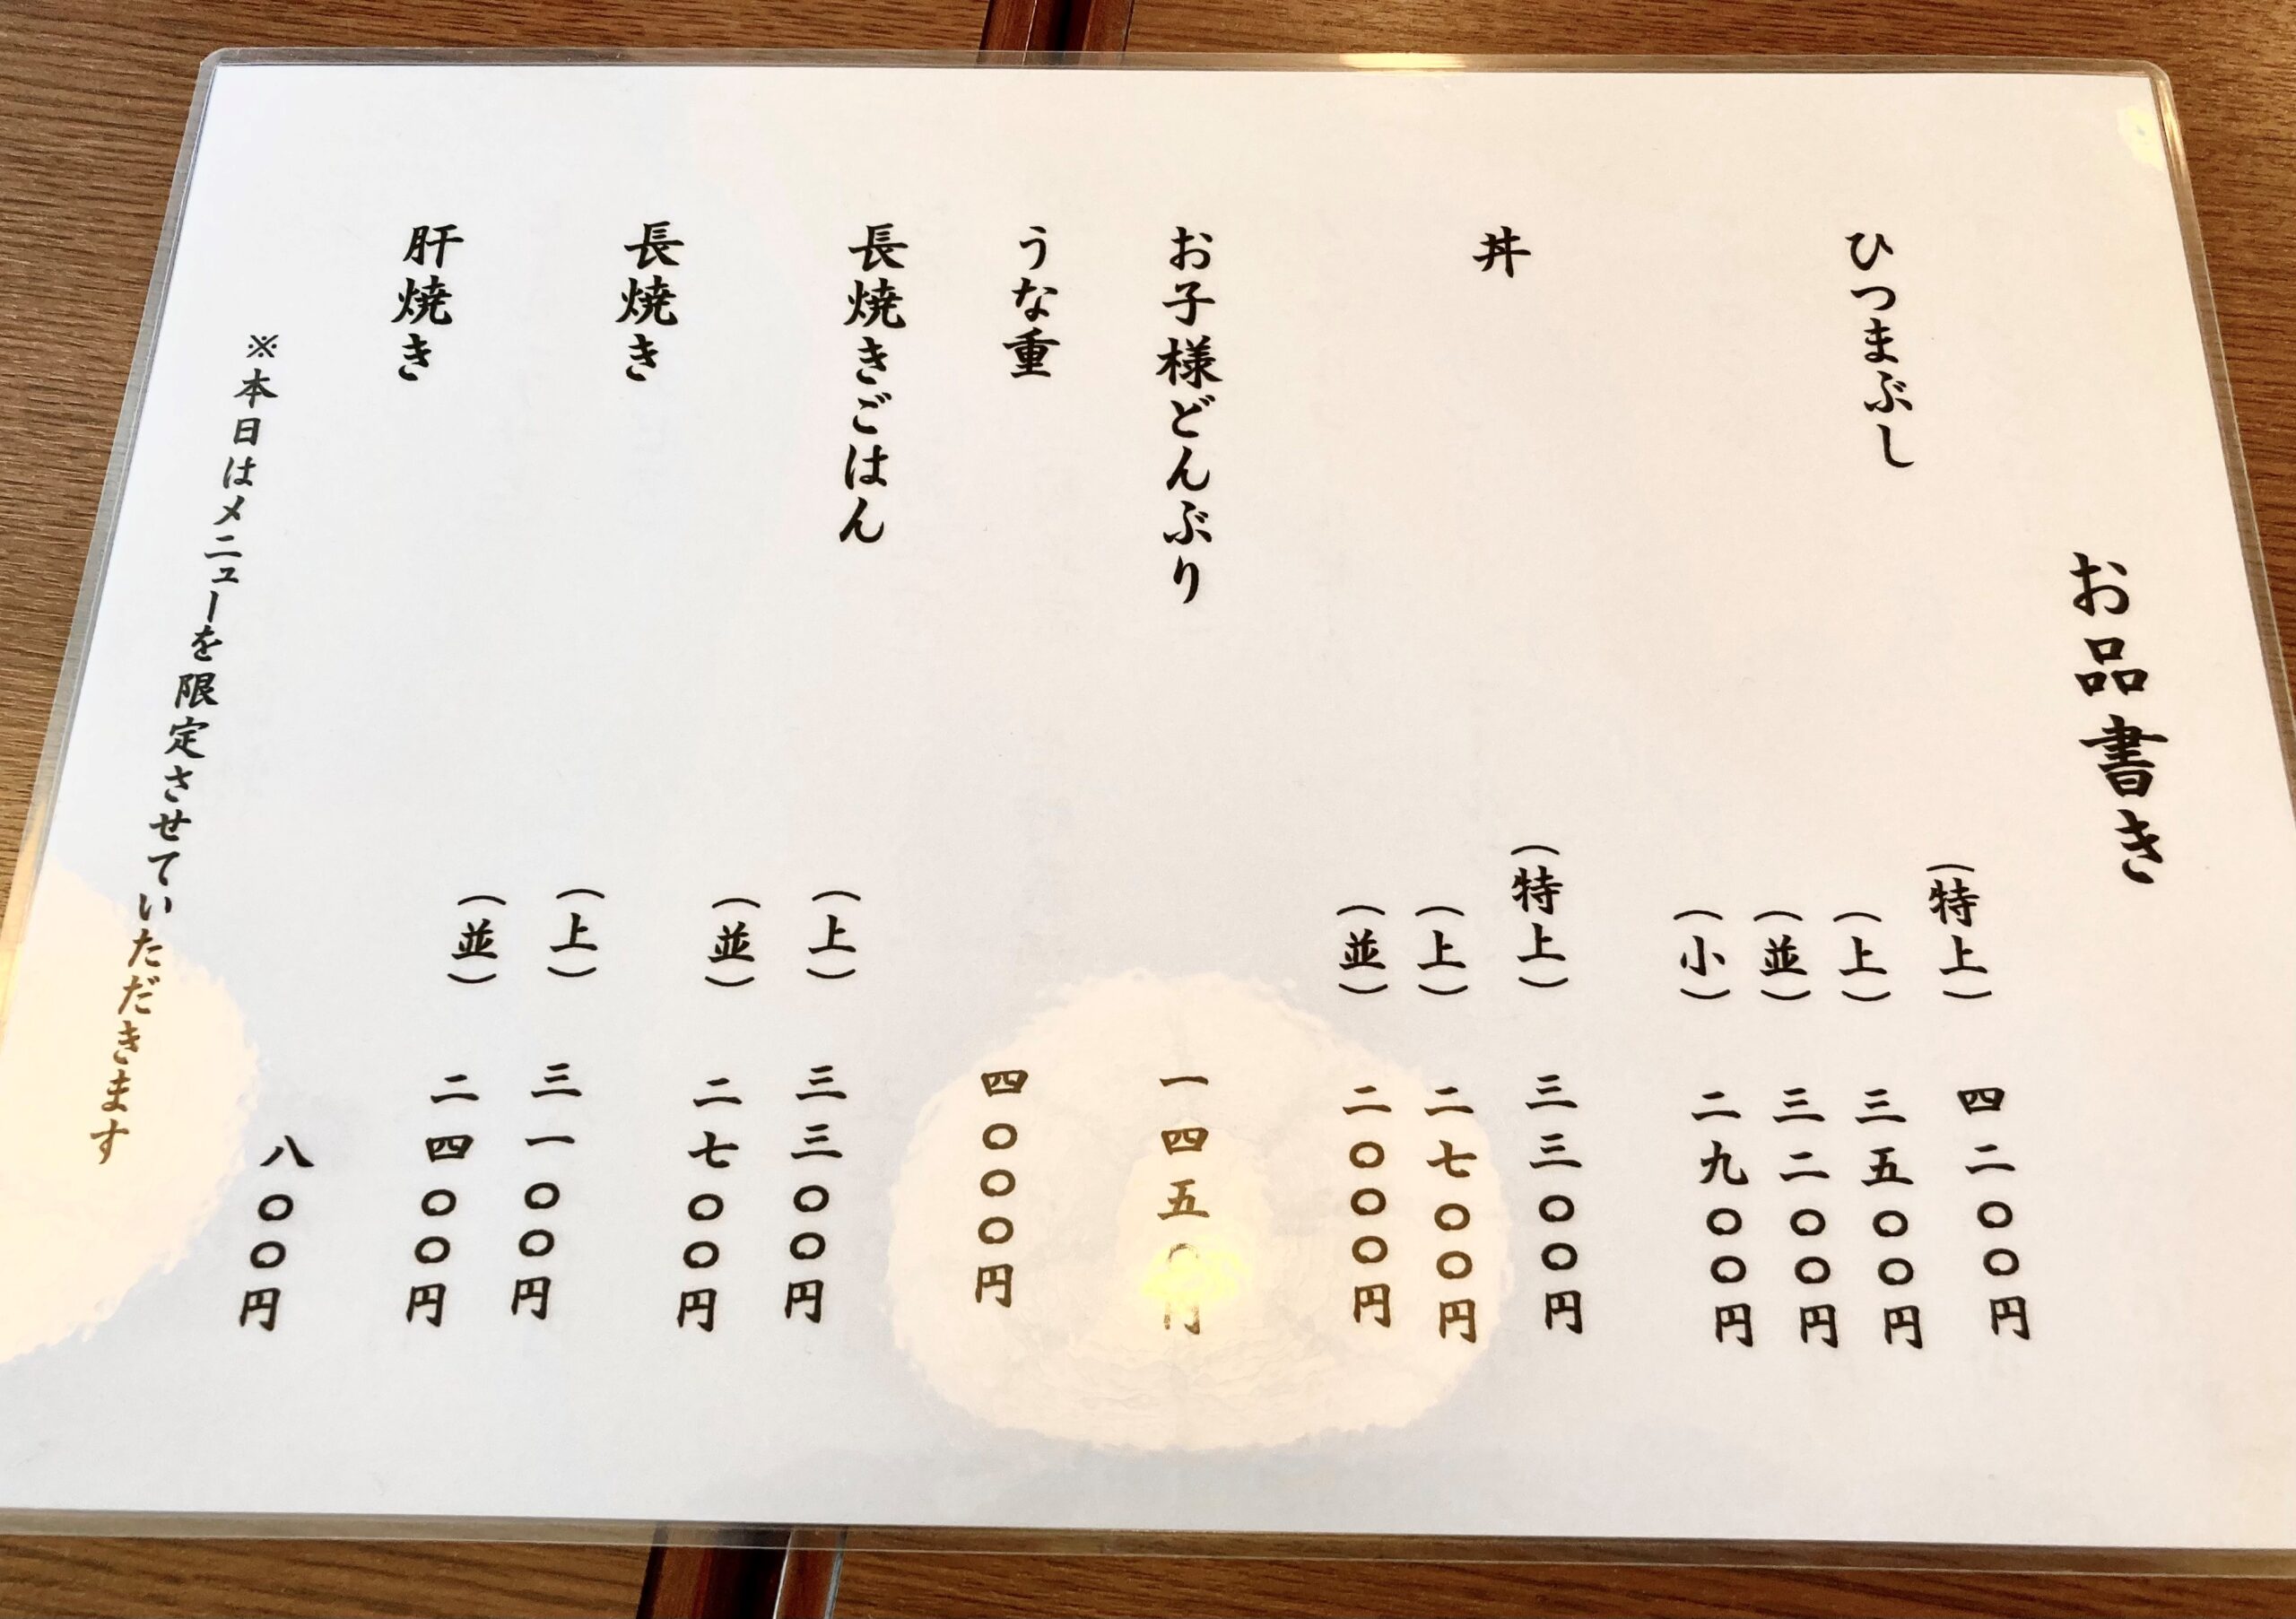 お品書き
ひつまぶし
（特上）　四二〇〇円
（上）　三五〇〇円
（並）　三二〇〇円
（小）　二九〇〇円
丼
（特上）　三三〇〇円
（上）　二七〇〇円
（並）　二〇〇〇円
お子様どんぶり　一四五〇円
うな重　四〇〇〇円
長焼きごはん
（上）　三三〇〇円
（並）　二七〇〇円
長焼き
（上）　三一〇〇円
（並）　二四〇〇円
肝焼き　八〇〇円
※本日はメニューを限定させていただきます